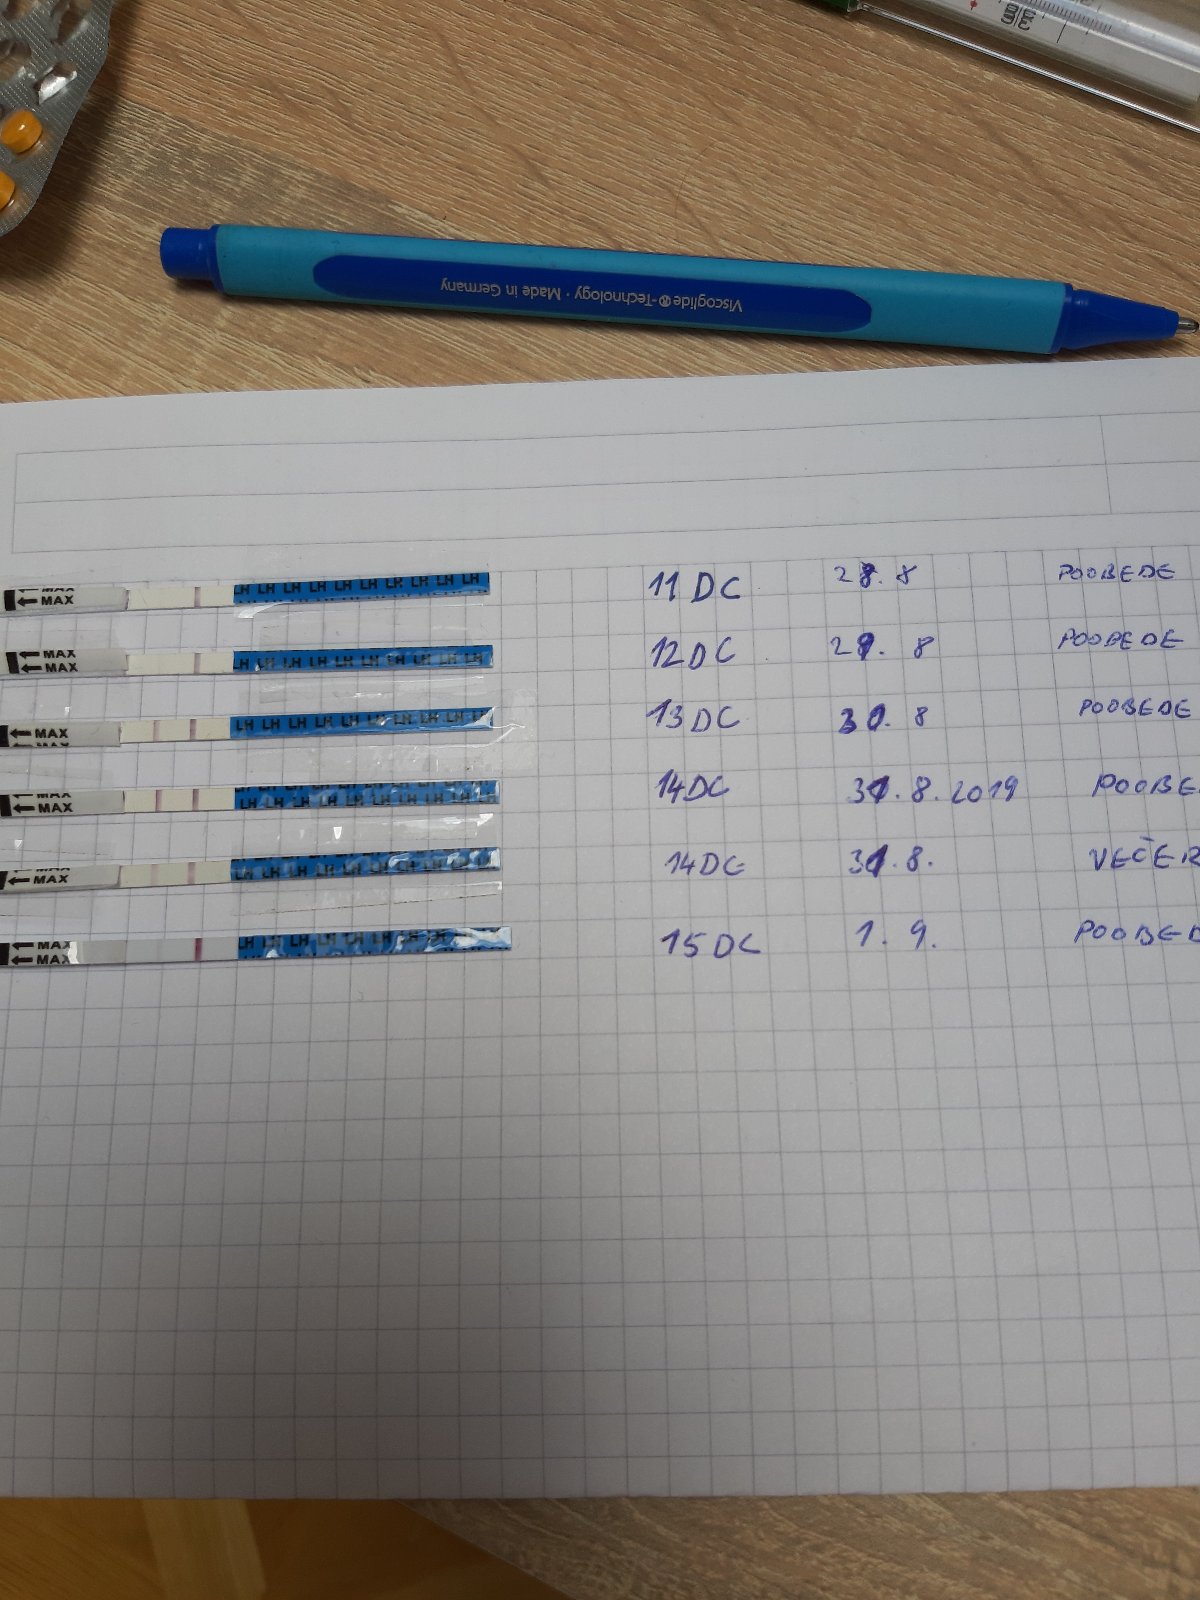 Viscoglide®-Technology · Made in Germany
MAX LH LH LH LH LH LH LH LH LH LH 11 DC 28. 8 POOBEDE
MAX
MAX LH LH LH LH LH LH LH LH LH LH 12 DC 29. 8 POOBEDE
MAX
MAX LH LH LH LH LH LH LH LH LH LH 13 DC 30. 8 POOBEDE
MAX LH LH LH LH LH LH LH LH LH 14 DC 31. 8. 2019 POOBE
MAX
MAX LH LH LH LH LH LH LH LH LH LH 14 DC 31. 8. VEČER
MAX LH LH LH LH LH LH LH LH 15 DC 1. 9. POOBED
MAX